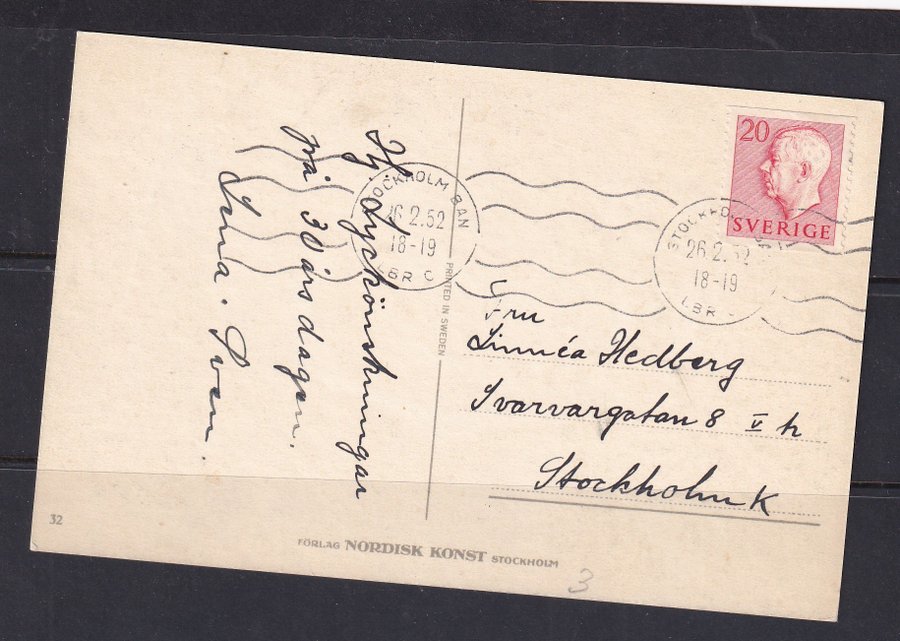 Hj. Lyckönskningar
på 30 årsdagen.
Irma. Sven.
STOCKHOLM BAN
26.2.52
18-19
LBR C
STOCKHOLM
26.2.52
18-19
LBR
20
SVERIGE
PRINTED IN SWEDEN
Fru
Linnéa Hedberg
Svarvargatan 8 V h
Stockholm K
32
FÖRLAG NORDISK KONST STOCKHOLM
3